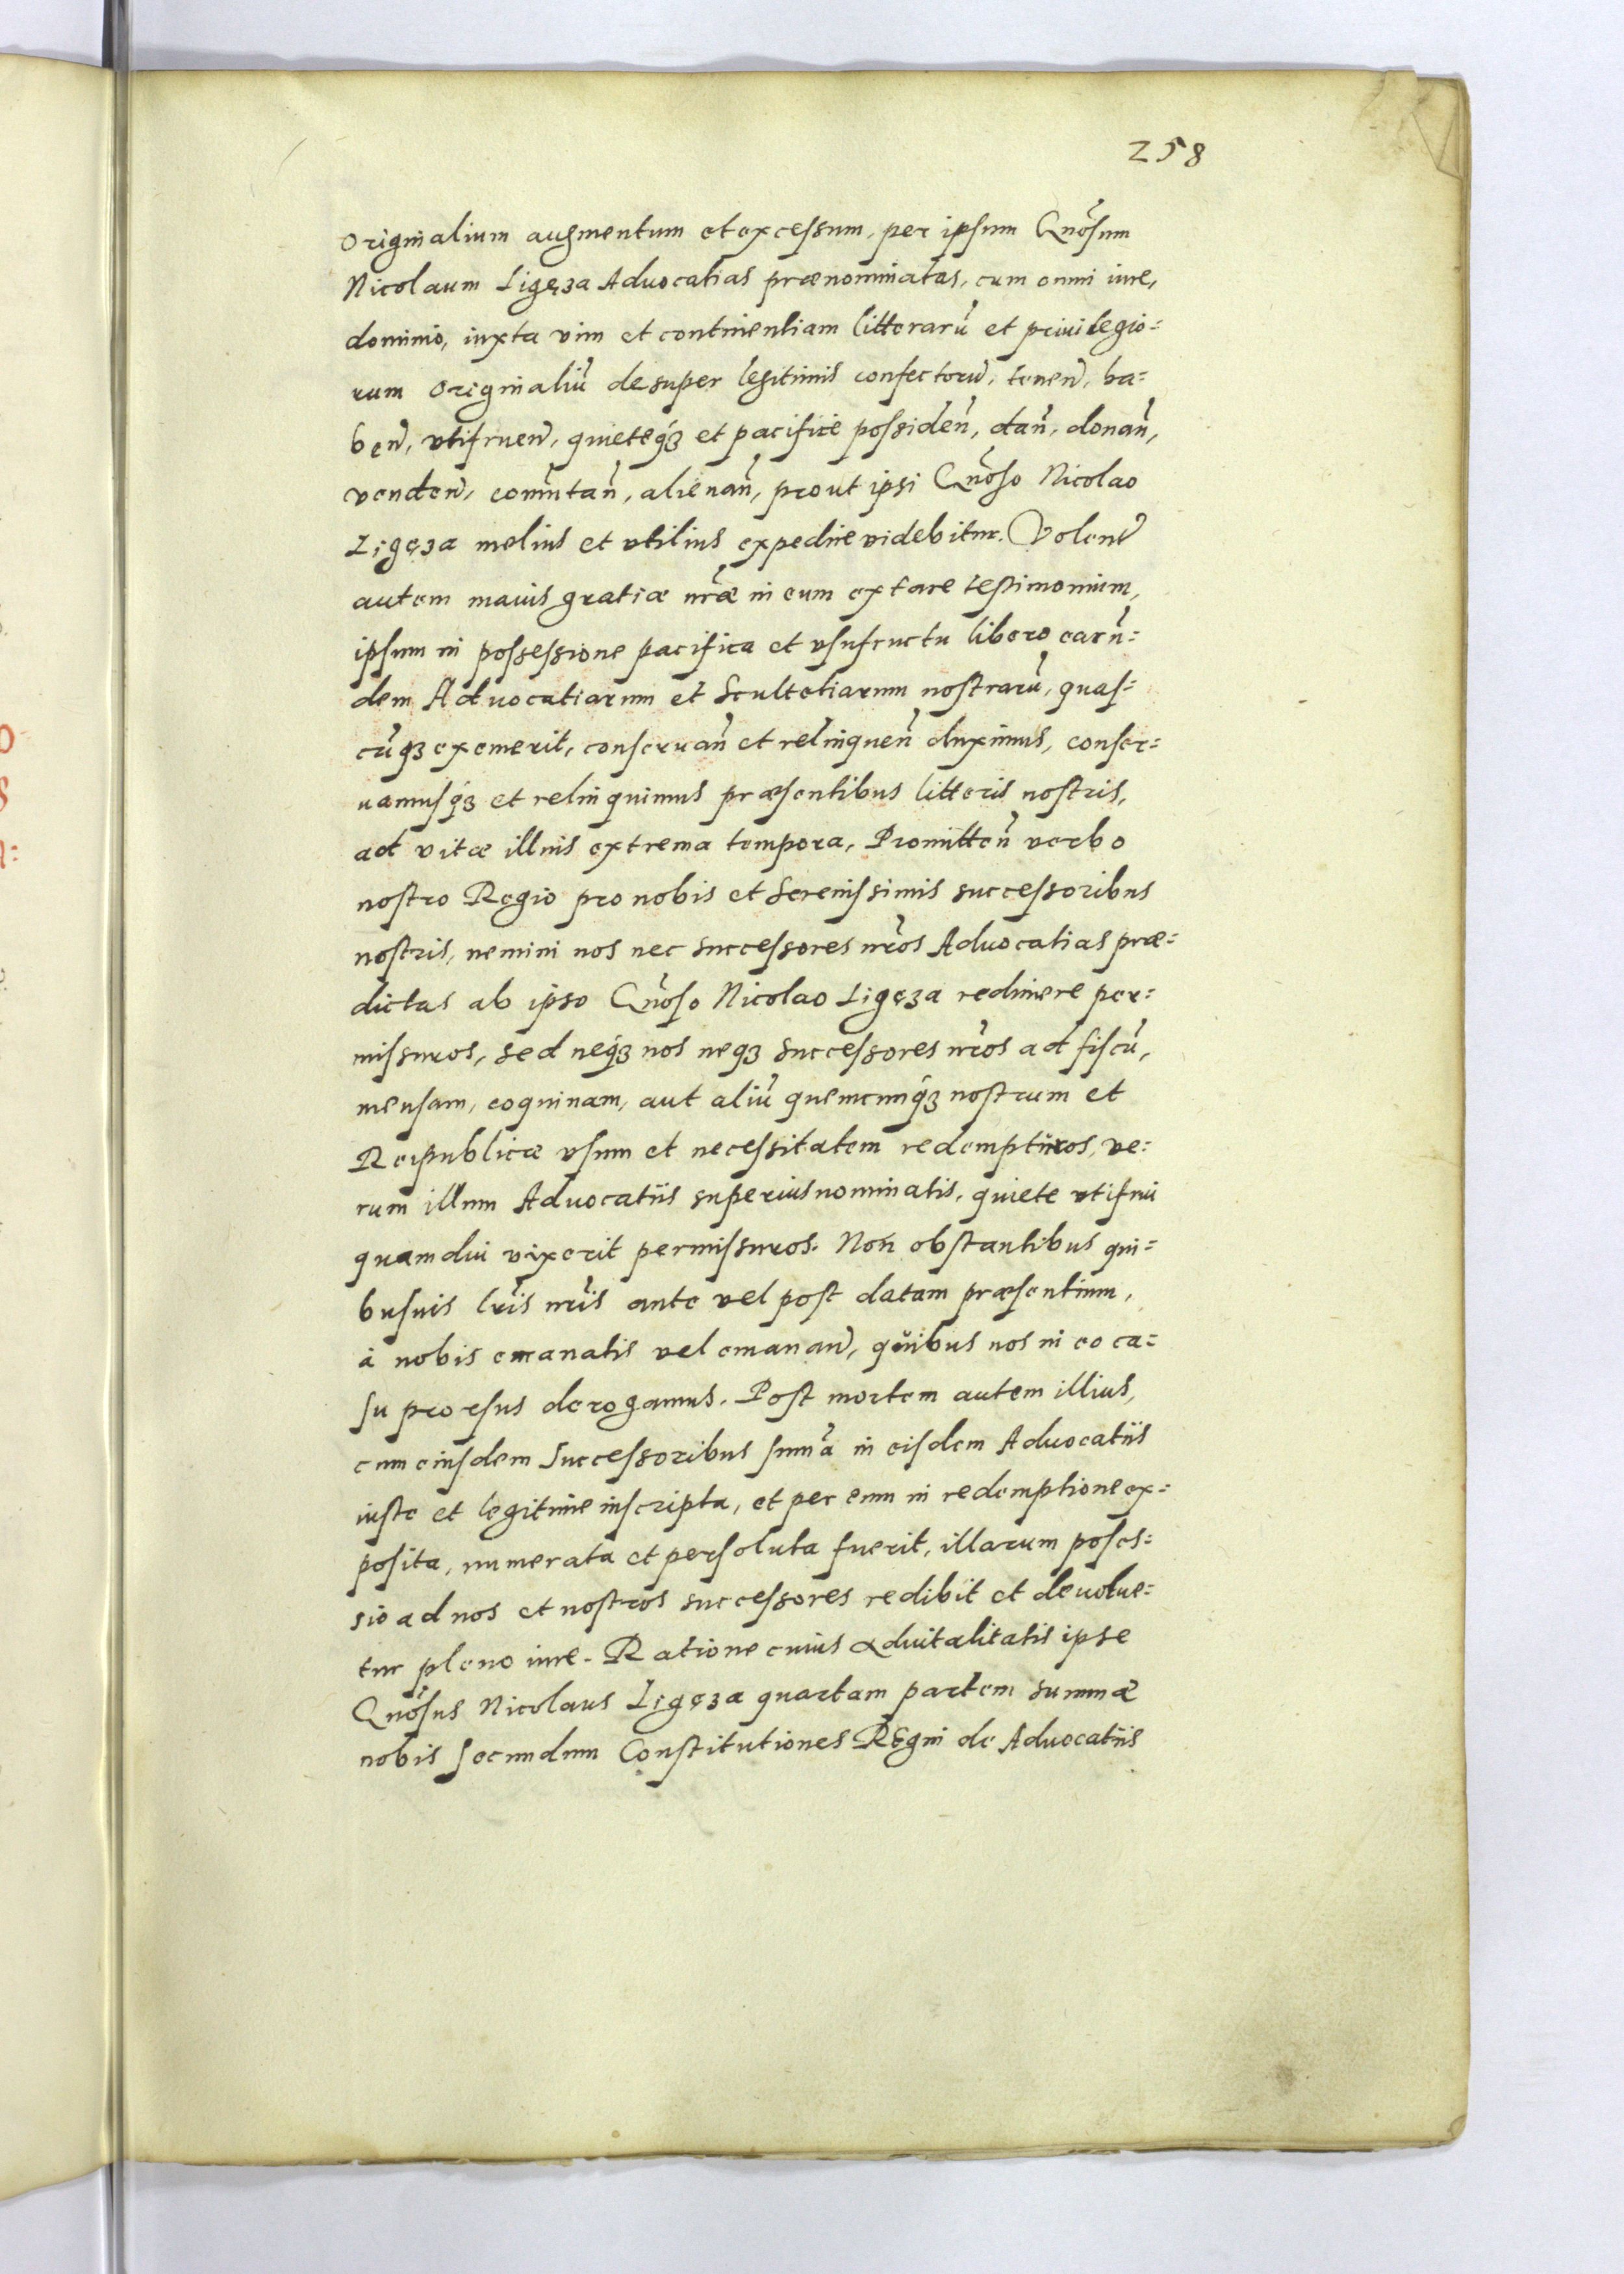 258
originalium augmentum et excessum, per ipsum Gnõsum
Nicolaum Ligęza Aduocatias prænominatas, cum omni iure,
dominio, iuxta vim et continentiam litterarũ et priuilegio=
rum originaliũ desuper legitimis confectorũ, tenen̄, ha=
ben̄, vtifruen̄, quieteq́ꝫ et pacifice possiden̄, dan̄, donan̄,
venden̄, com̄utan̄, alienan̄, prout ipsi Gnõso Nicolao
Ligęza melius et vtilius expedire videbitur. Volen̄
autem maius gratiæ nr̃æ in eum extare testimonium,
ipsum in possessione pacifica et vsufructu libero earũ=
dem Aduocatiarum et Scultetiarum nostrarũ, quas=
cũqꝫ exemerit, conseruan̄ et relinquen̄ duximus, conser=
uamusq́ꝫ et relinquimus præsentibus litteris nostris,
ad vitæ illius extrema tempora, Promitten̄ verbo
nostro Regio pro nobis et Serenissimis successoribus
nostris, nemini nos nec successores nr̃os Aduocatias præ=
dictas ab ipso Gnõso Nicolao Ligęza redimere per=
missuros, sed neq́ꝫ nos neqꝫ successores nr̃os ad fiscũ,
mensam, coquinam, aut aliũ quemcunq́ꝫ nostrum et
Reipublicæ vsum et necessitatem redempturos, ve=
rum illum Aduocatiis superius nominatis, quiete vtifrui
quamdiu vixerit permissuros. Non obstantibus qui=
busuis lr̃is nr̃is ante vel post datam præsentium,
à nobis emanatis vel emanan̄, quibus nos in eo ca=
su prorsus derogamus. Post mortem autem illius,
cum eiusdem Successoribus sum̃a in eisdem Aduocatiis
iuste et legitime inscripta, et per eum in redemptione ex=
posita, numerata et persoluta fuerit, illarum posses=
sio ad nos et nostros successores redibit et deuolue=
tur pleno iure. Ratione cuius aduitalitatis ipse
Gnõsus Nicolaus Ligęza quartam partem summæ
nobis secundum Constitutiones Regni de Aduocatiis